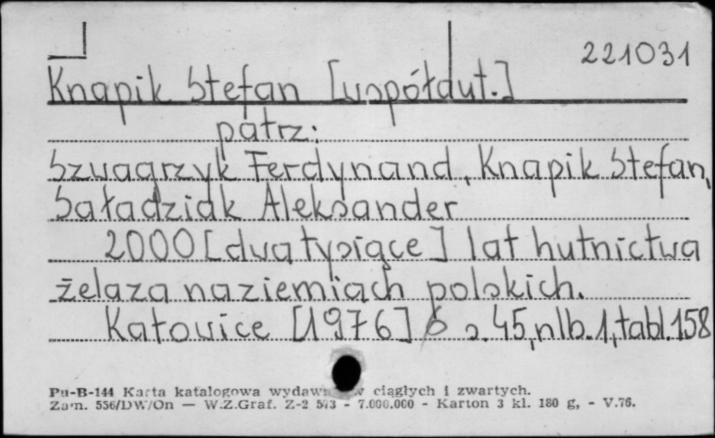 221031
Knapik Stefan [współaut.]
patrz:
Szwagrzyk Ferdynand, Knapik Stefan,
Saładziak Aleksander
2000 [dwa tysiące] lat hutnictwa
żelaza na ziemiach polskich.
Katowice [1976] s. 45, nlb. 1, tabl. 158
Pu-B-144 Karta katalogowa wydawn ciągłych i zwartych.
Zam. 556/DW/On — W.Z.Graf. Z-2 573 - 7.000.000 - Karton 3 kl. 180 g, - V.76.